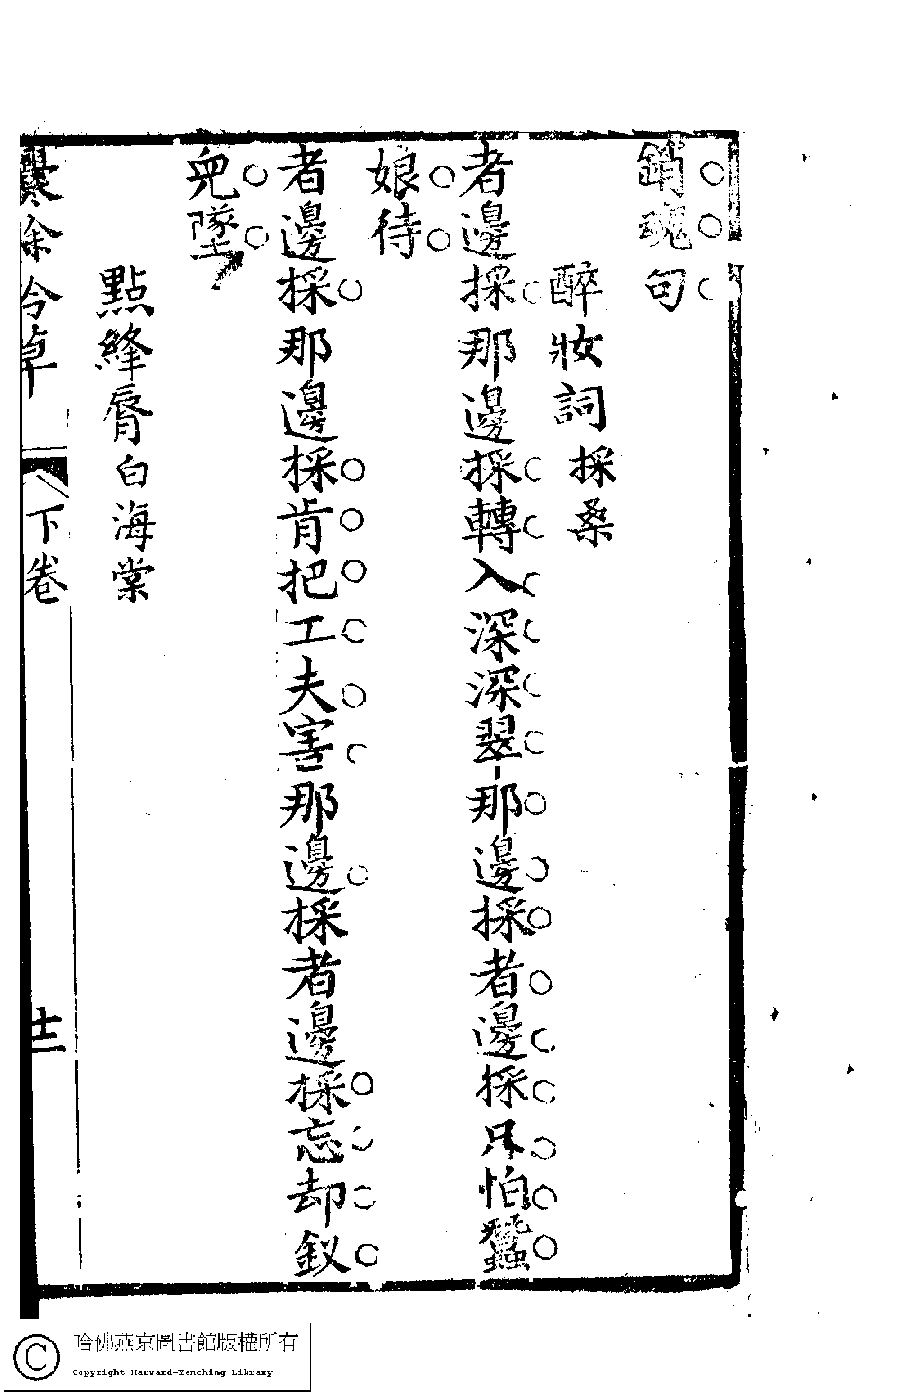 銷魂句
醉妝詞 採桑
者邊採那邊採轉入深深翠那邊採者邊採只怕蠶
娘待
者邊採那邊採肯把工夫害那邊採者邊採忘却釵
兜墜
點絳脣 白海棠
爨餘吟草 下卷 十二
哈佛燕京圖書館版權所有
Copyright Harvard-Yenching Library